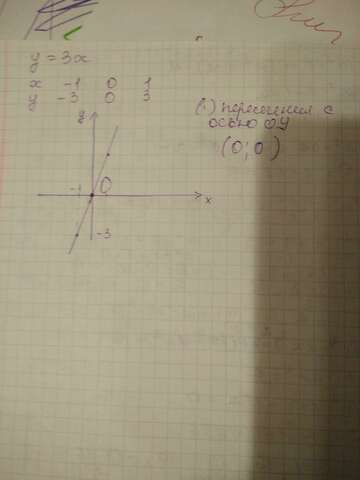 y = 3x
x -1 0 1
y -3 0 3
(·) пересечения с
осью OY
(0; 0)
y
-1 0
x
-3